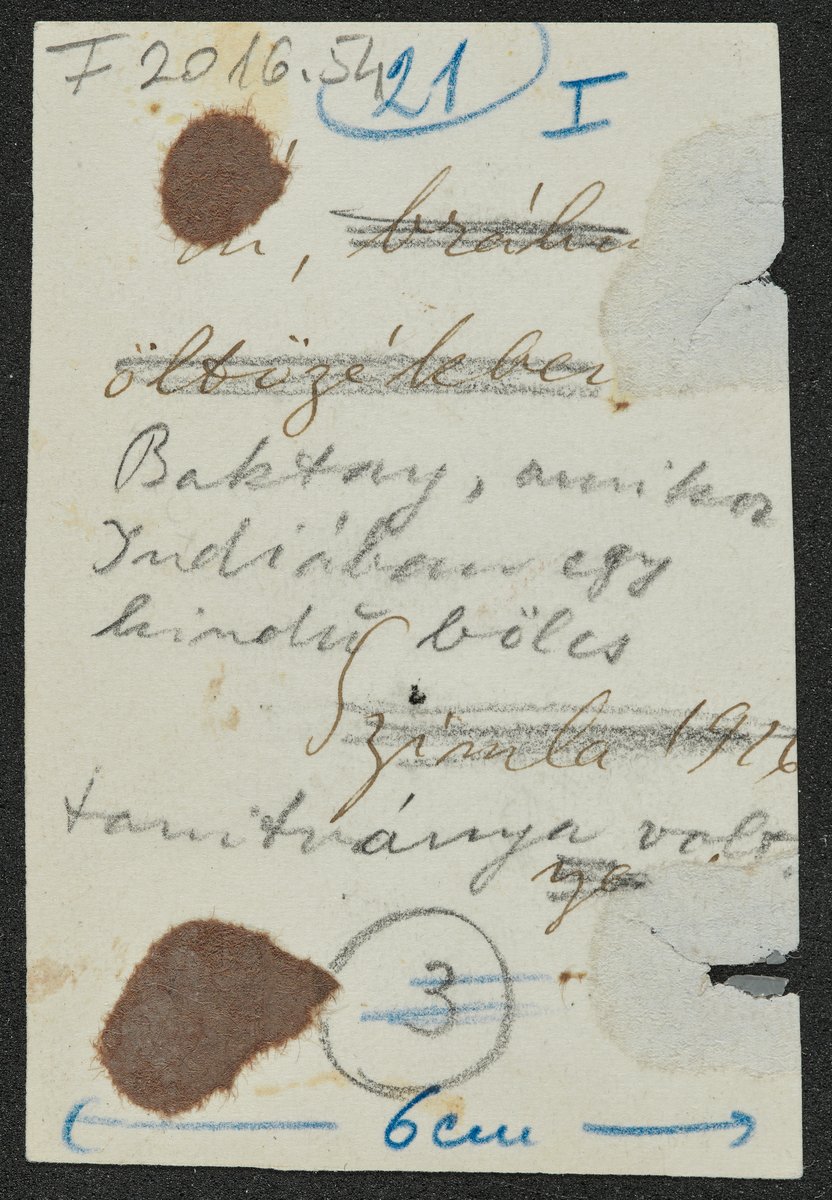 F 2016.54
21 I
, bráhm
öltözékben
Baktay, amikor
Indiában egy
hindú bölcs
Szimla 1926
tanitványa volt.
3
6cm